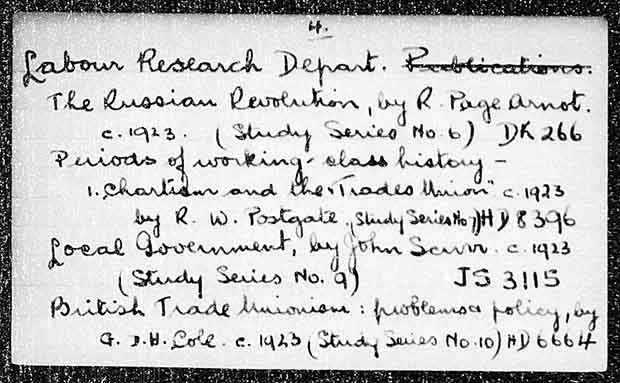 4.
Labour Research Depart. Publications.
The Russian Revolution, by R. Page Arnot.
c. 1923. (Study Series No. 6) DK 266
Periods of working-class history -
1. Chartism and the "Trades Union" c. 1923
by R. W. Postgate. (Study Series No 7) HD 8396
Local Government, by John Scurr. c. 1923
(Study Series No. 9) JS 3115
British Trade Unionism: problems & policy, by
G. D. H. Cole. c. 1923 (Study Series No. 10) HD 6664